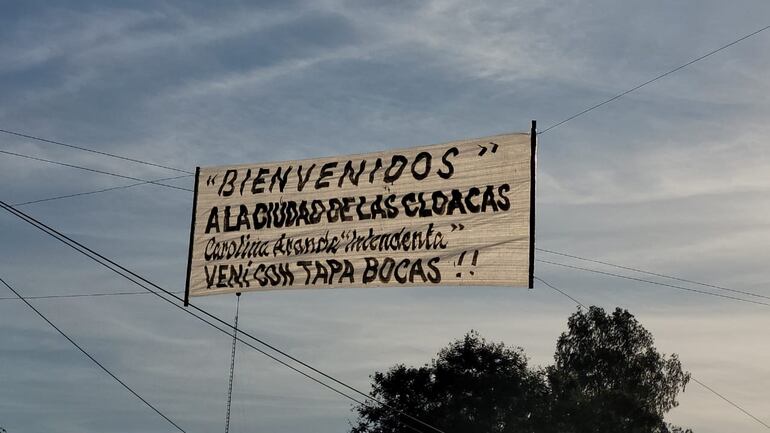 "BIENVENIDOS"
A LA CIUDAD DE LAS CLOACAS
Carolina Aranda "Intendenta"
VENÍ CON TAPA BOCAS !!